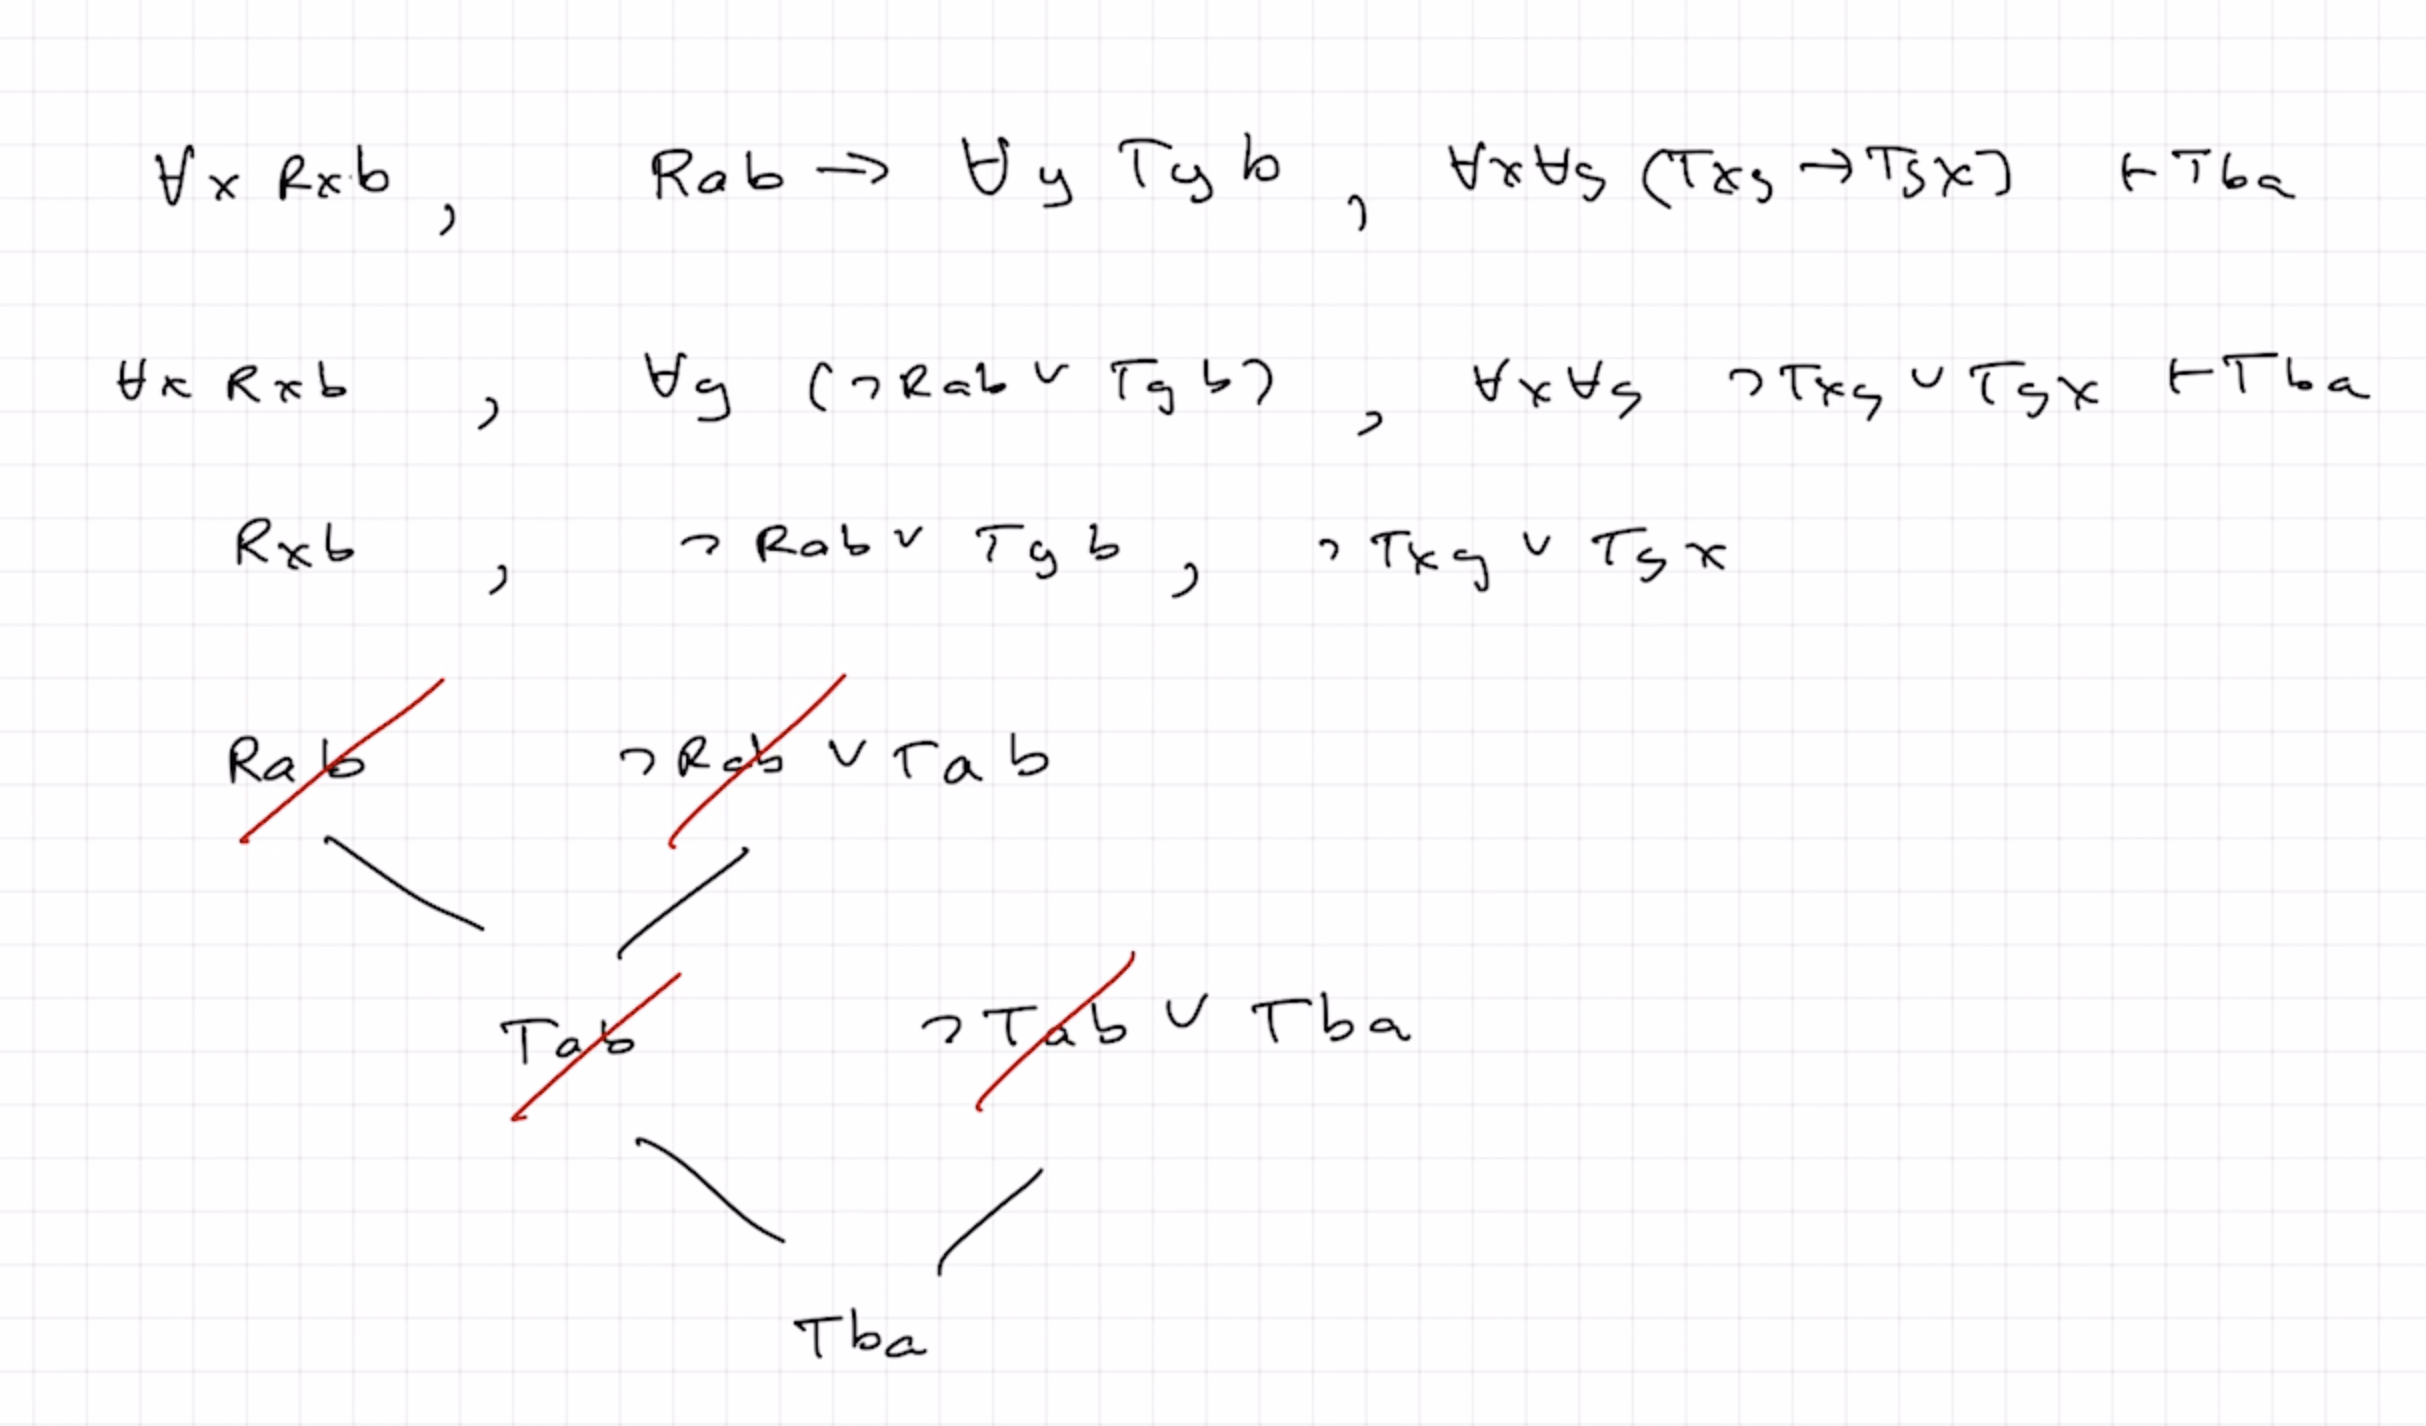 ∀x Rxb , Rab → ∀y Tyb , ∀x∀y (Txy → Tyx) ⊢ Tba
∀x Rxb , ∀y (¬Rab ∨ Tyb) , ∀x∀y ¬Txy ∨ Tyx ⊢ Tba
Rxb , ¬Rab ∨ Tyb , ¬Txy ∨ Tyx
Rab ¬Rab ∨ Tab
Tab ¬Tab ∨ Tba
Tba